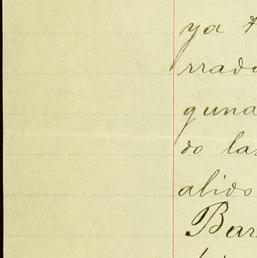 ya
rrad
guna
do la
alido
Bar